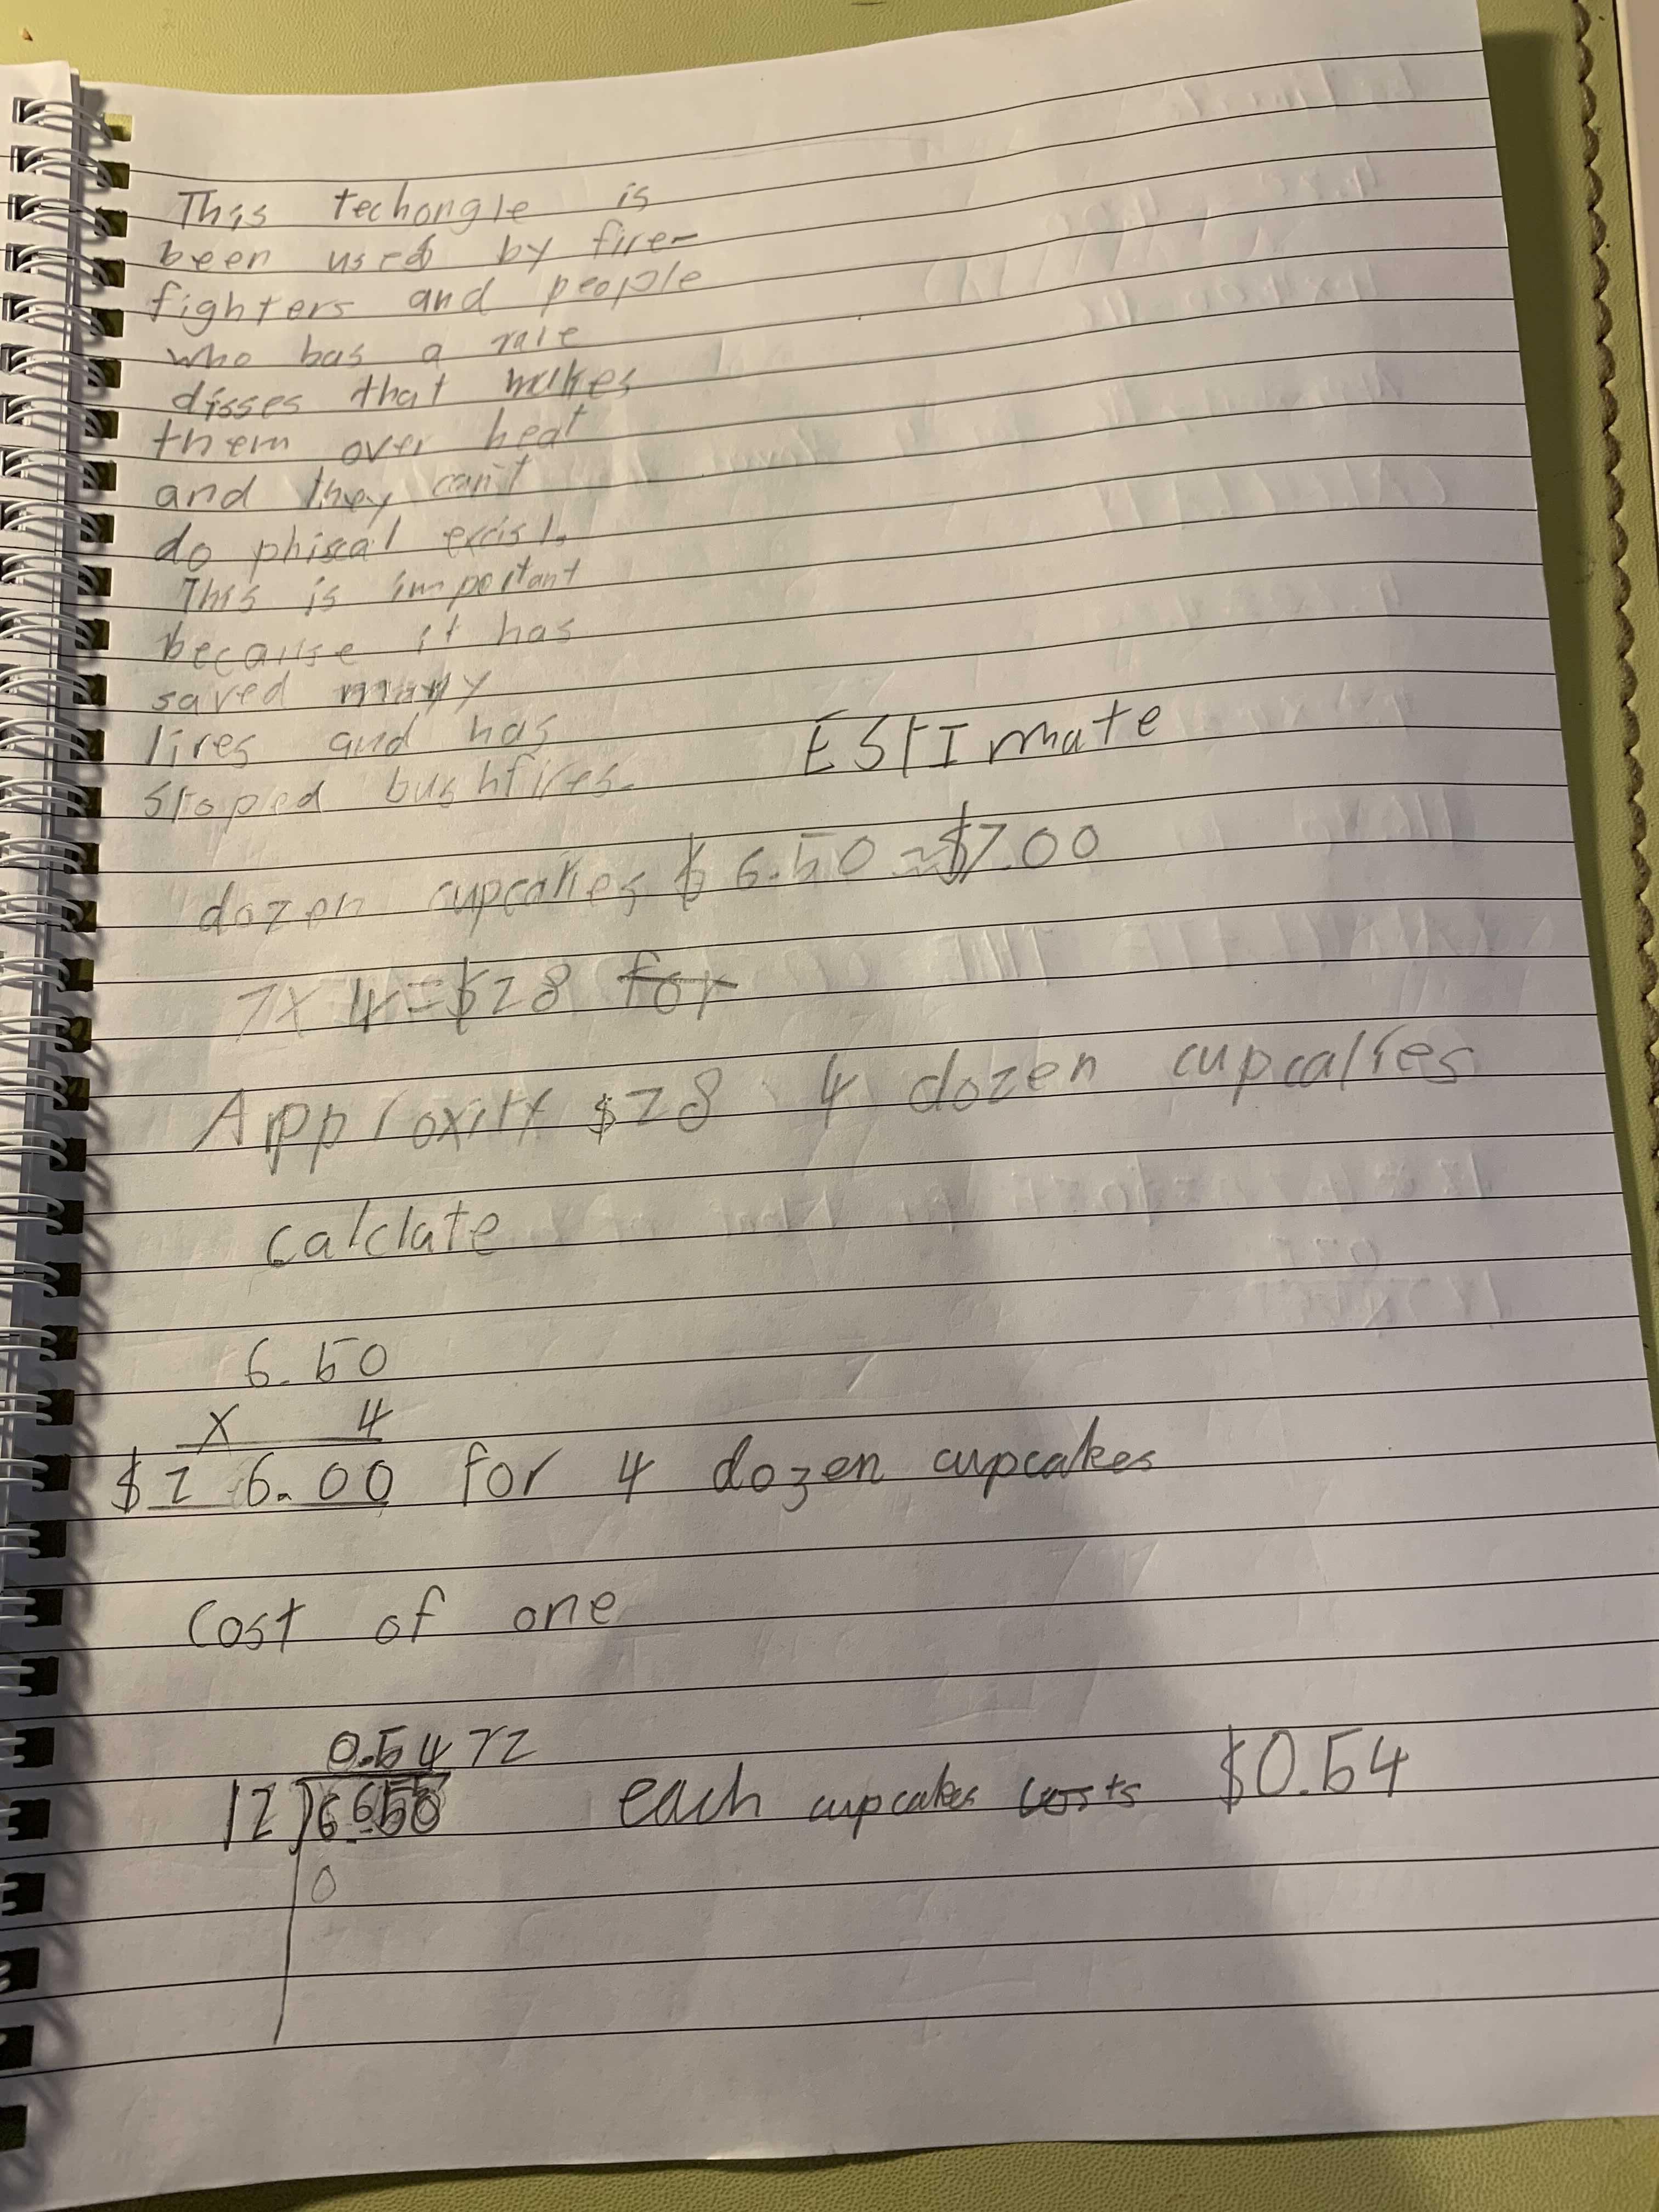 This techongle is
been used by fire-
fighters and people
who has a rare
disses that makes
them over heat
and they can't
do phiscal
This is important
because it has
saved many
lives and has
stoped bushfires.
ESTImate
dozen cupcakes $6.50 ≈ $7.00
7x 4=$28 for
$28 4 dozen cupcakes
calclate
6.50
x 4
$26.00 for 4 dozen cupcakes
cost of one
0.54
12 6.50 each cupcakes costs $0.54
0